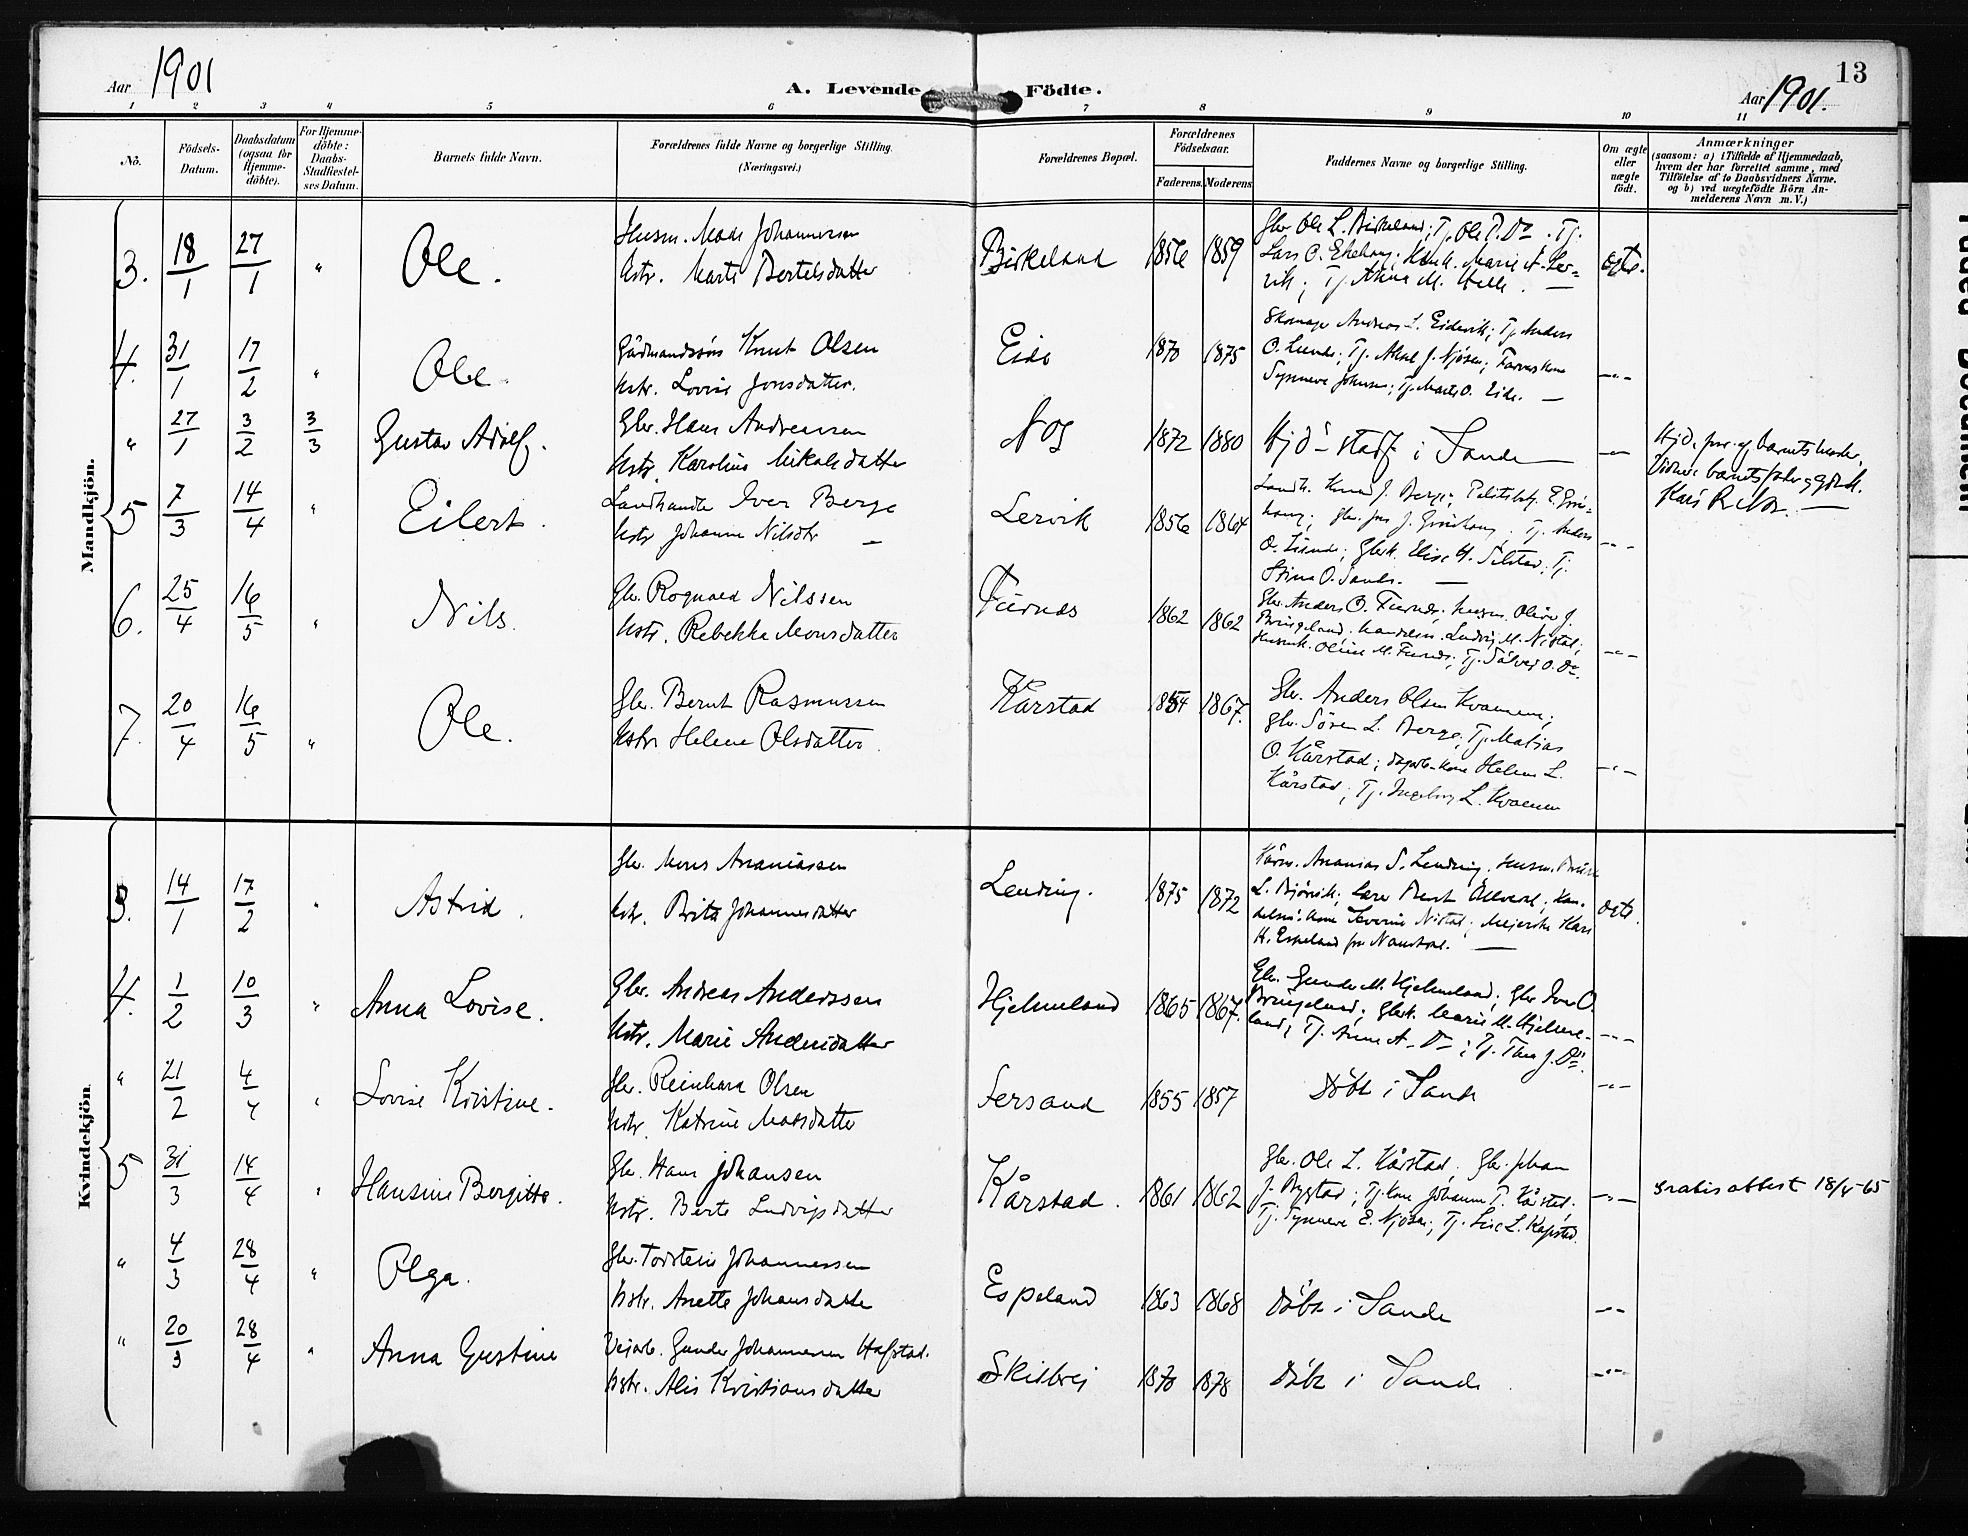 Aar 1901
A. Levende Födte.
13
Aar 1901.
1 2 3 4 5 6 7 8 9 10 11
No.
Födsels-Datum.
Daabsdatum (ogsaa for Hjemme-döbte).
For Hjemme-döbte: Daabs-Stadfæstel-ses Datum.
Barnets fulde Navn.
Forældrenes fulde Navne og borgerlige Stilling. (Næringsvei.)
Forældrenes Bopæl.
Forældrenes Födselsaar.
Faderens. Moderens.
Faddernes Navne og borgerlige Stilling.
Om ægte eller uægte födt.
Anmærkninger
(saasom: a) i Tilfælde af Hjemmedaab, hvem der har forrettet samme, med Tilföielse af to Daabsvidners Navne. og b) ved uægtefödte Börn An-melderens Navn m.V.)
Mandkjön.
3. 18/1 27/1 " Ole.
Husm. Mads Johannessen
Hstr. Marte Bertelsdatter
Birkeland 1856 1859
Gbr Ole L. Birkeland; Tj. Ole P. Do. Tj.
Lars O. Marie A. Ler-
vik; Tj. M. Helle. —
ægte.
4. 31/1 17/2 " Ole.
Gårdmandssøn Knut Olsen
Hstr. Lovise Jonsdatter.
Eide 1870 1875
Skomager Andreas L. Eidevik; Tj. Anders
O. Lunde; Tj. J. Njøsen;
Synneve Johnsen; Tj. Marte O. Eide. —
—"—
" 27/1 3/2 3/3 Gustav Adolf.
Gbr. Hans Andreassen
Hstr. Karoline Mikalsdatter
Nos 1872 1880
Hjd - stadf i Sande
—"—
Hjd. prv. af barnets moder.
Vidner barnets fader og
5 7/3 14/4 " Eilert.
Landhandler Iver Berge
Hstr Johanne Nilsdtr —
Lervik 1856 1864
Landh. Knud J. Berge;
Tj. Anders
O. Lunde; Elise H. Tj.
Stina O. Sande. —
—"—
6. 25/4 16/5 " Nils.
Gbr. Rognald Nilssen
Hstr. Rebekke Monsdatter
Furnæs 1862 1862
Gbr. Anders O. Furnæs, Oline J.
Bringeland. Ludvig M. Nistad;
Oline M. Furnæs; Tj. Sølvei O. Do.
—"—
7. 20/4 16/5 " Ole.
Gbr. Bernt Rasmussen
Hstr Helene Olsdatter.
Kårstad 1854 1867.
Gbr. Anders Olsen Kvamme;
Gbr. Søren L. Berge; Tj. Matias
O. Kårstad; Helene L.
Kårstad; Tj. Ingeborg L. Kvamme
—"—
Kvindekjön
3. 14/1 17/2 " Astrid.
Gbr. Mons Ananiassen
Hstr. Brita Johannesdatter
Lending. 1875 1872
Kårm. Ananias S. Lending, Husm.
L. Bjørvik; Bernt
Severine Nistad; Meierske Kari
H. Espeland fra Naustdal. —
ægte.
4. 1/2 10/3 " Anna Lovise.
Gbr. Andreas Anderssen
Hstr. Marie Andersdatter
Hjelmeland 1865 1867.
Gbr. Gunder M. Hjelmeland; Gbr Iver O.
Bringeland; Marie M. Hjelme-
land; Tj. Anne A. Do; Tj. Thea J. Do.
—"—
" 21/2 4/4 " Lovise Kristine.
Gbr. Reinhard Olsen
Hstr. Katrine Madsdatter
Sersand 1855 1857
Døbt i Sande
—"—
5 31/3 14/4 " Hansine Bergitte.
Gbr. Hans Johansen
Hstr. Berte Ludvigsdatter
Kårstad. 1861 1862
Gbr. Ole L. Kårstad; Gbr. Johan
J. Bygstad; Tj. kone Johanne T. Kårstad;
Tj. Synneve E. Njøsen; Tj. Lise L.
—"—
Gratis attest 18/4-65
" 4/3 28/4 " Olga.
Gbr. Torstein Johannessen
Hstr. Anette Johansdatter
Espeland 1863 1868
Døbt i Sande
—"—
" 20/3 28/4 " Anna Gustine
Veiarb. Gunder Johannessen Hafstad.
Hstr. Alis Kristiansdatter
Skilbrei 1870 1878
Døbt i Sande
—"—